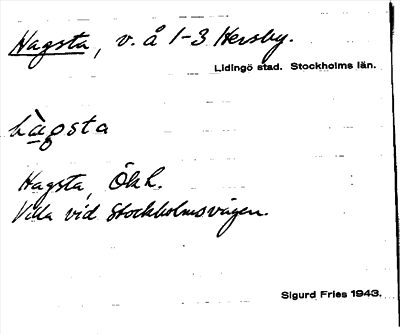 Hagsta, v. å 1-3 Hersby.
Lidingö stad. Stockholms län.
hàgsta
Hagsta, Ökh.
Villa vid Stockholmsvägen.
Sigurd Fries 1943.